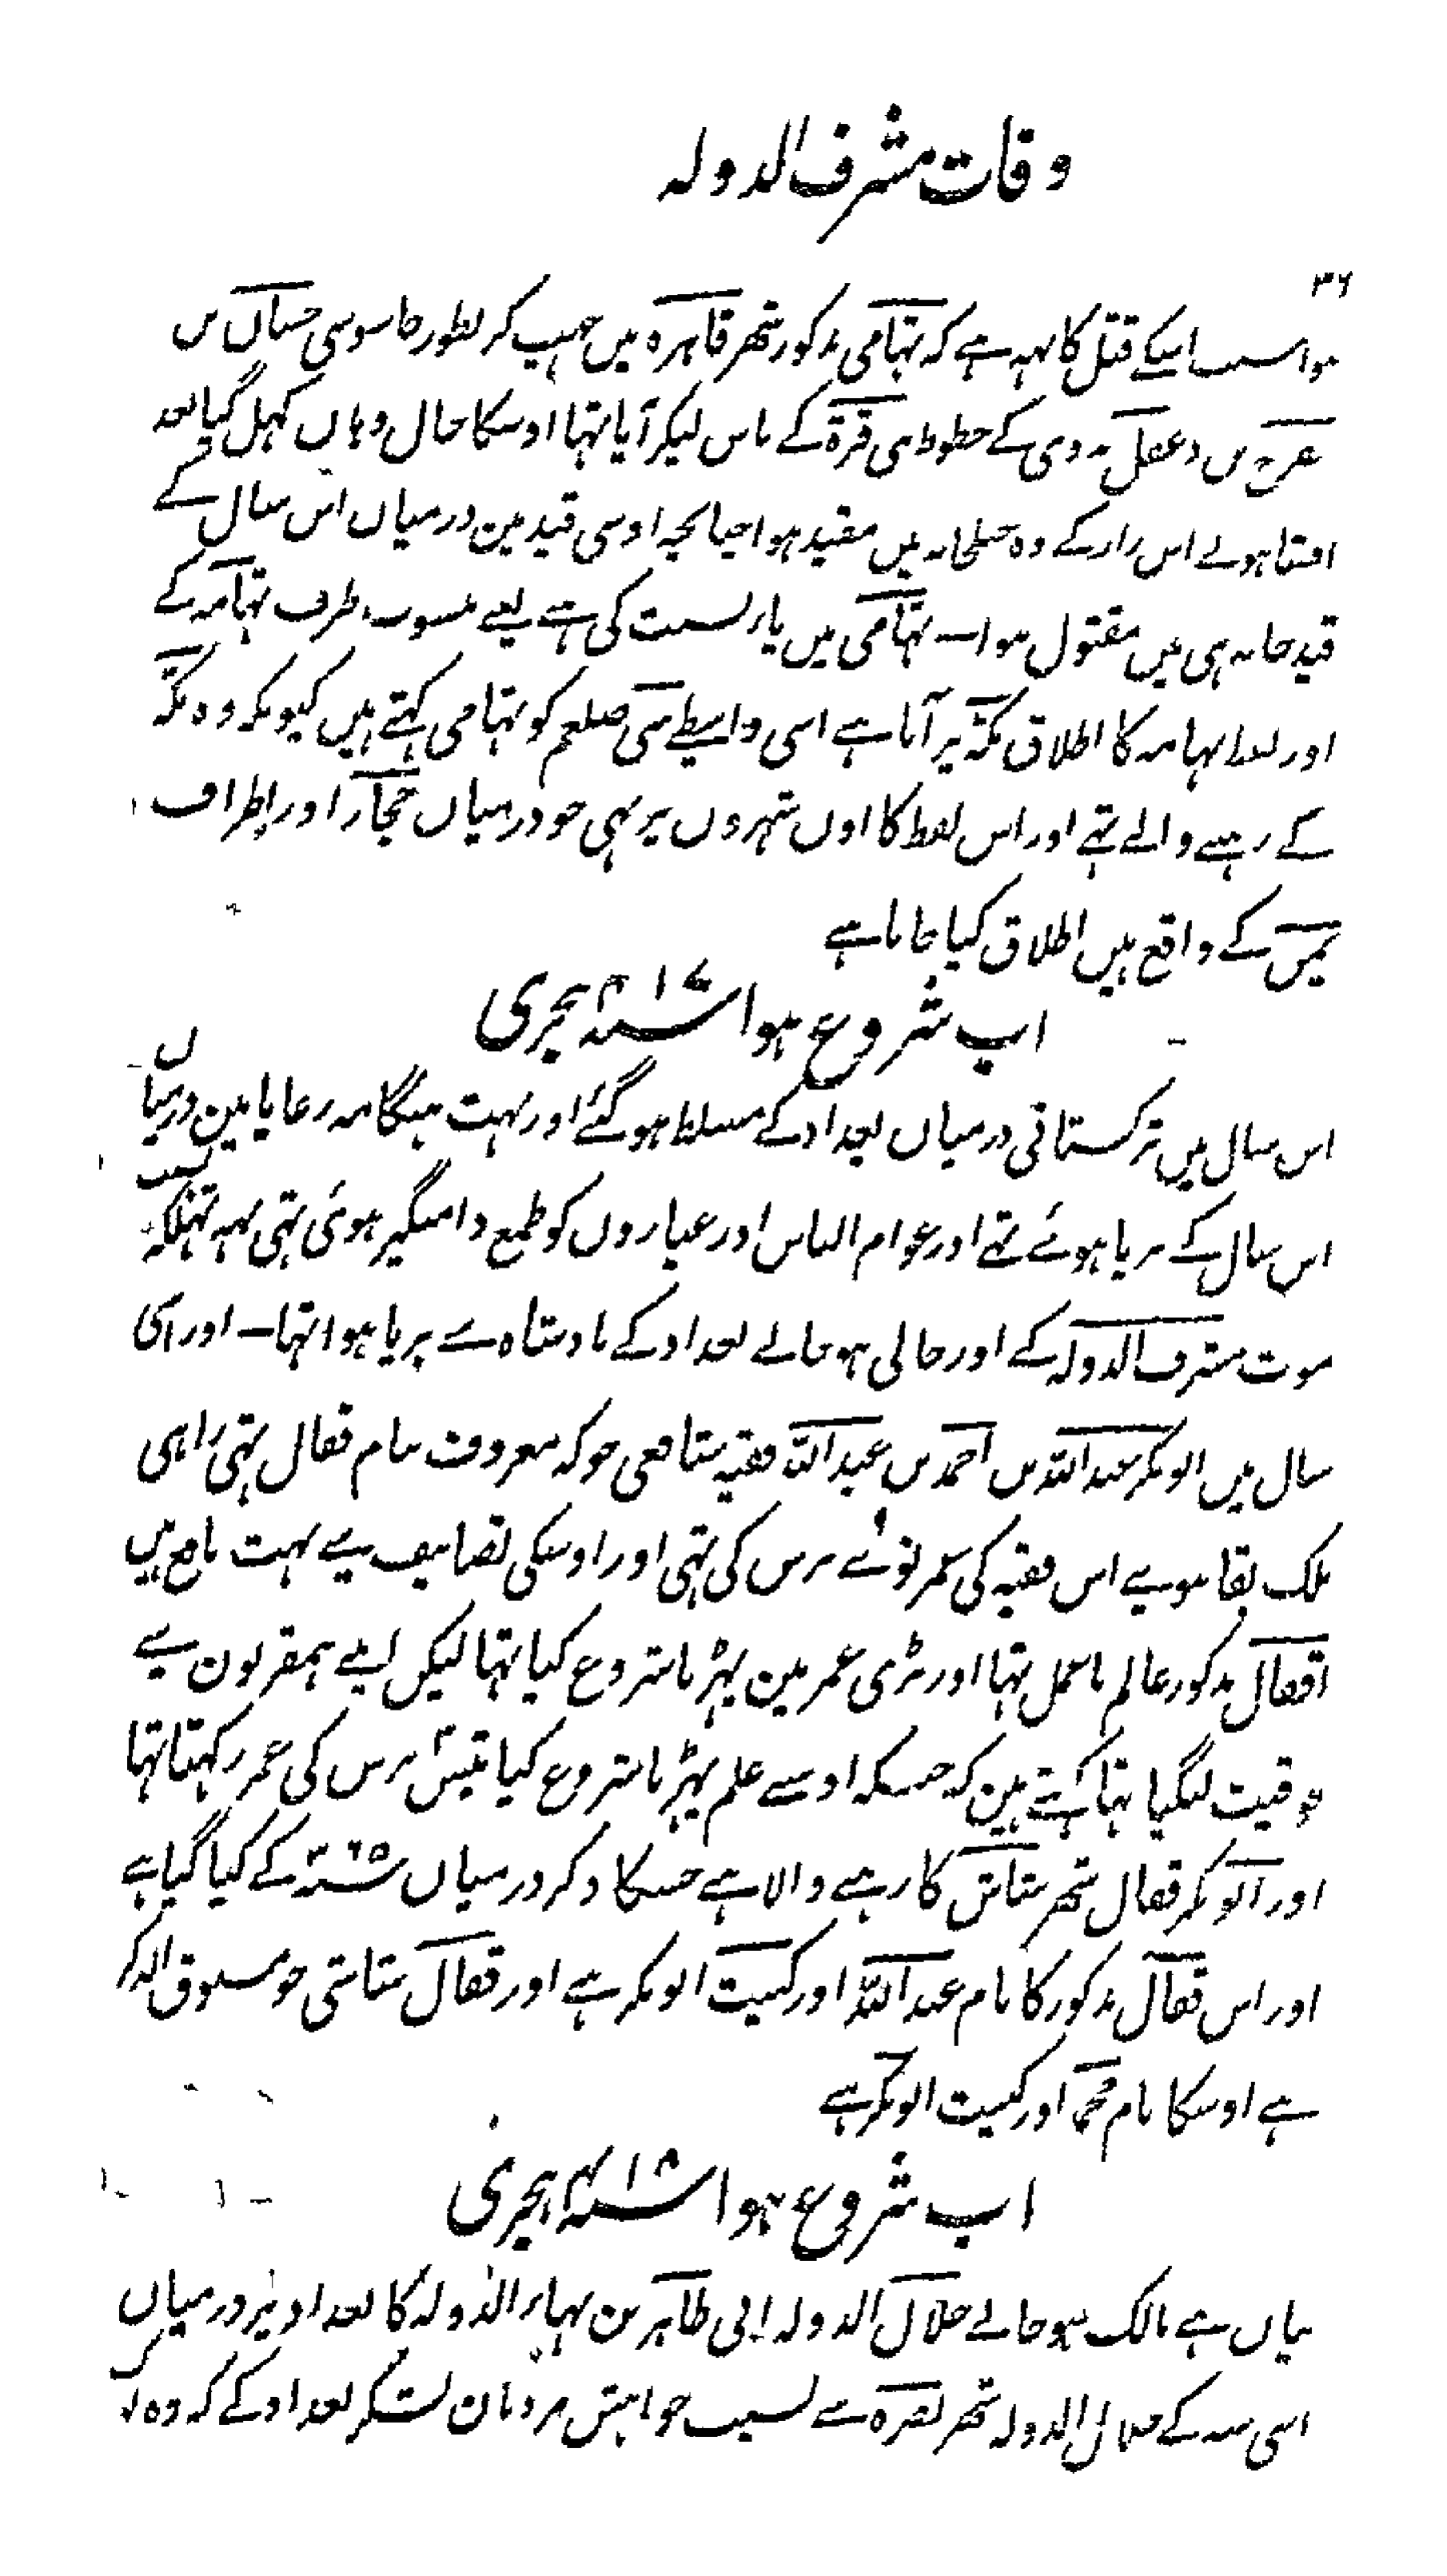 وفات مشرف الدولہ
۳۶
ہوا سبب اسکے قتل کا یہہ ہے کہ تہامی مذکور شہر قاہرہ میں چہپ کر بطور جاسوسی حسان بن
مفرج بن دغفل بدوی کے خطوط بنی قرۃ کے پاس لیکر آیا تہا اوسکا حال وہاں کہل گیا بعد
افشا ہونے اس راز کے وہ جیلخانہ میں مقید ہوا چنانچہ اوسی قید مین درمیاں اس سال کے
قید خانہ ہی میں مقتول ہوا ــ تہامی میں یاے نسبت کی ہے یعنے منسوب طرف تہامہ کے
اور لفظ تہامہ کا اطلاق مکہ پر آتا ہے اسی واسطے نبی صلعم کو تہامی کہتے ہیں کیونکہ وہ مکہ
کے رہنے والے تہے اور اس لفظ کا اون شہروں پر بہی جو درمیاں حجاز اور اطراف
یمن کے واقع ہیں اطلاق کیا جاتا ہے
اب شروع ہوا سنہ ۴۱۷ ہجری
اس سال میں ترکستانی درمیاں بغداد کے مسلط ہو گئے اور بہت ہنگامہ رعایا مین درمیاں
اس سال کے برپا ہوئے تہے اور عوام الناس اور عیاروں کو طمع دامنگیر ہوئی تہی یہہ تہلکہ بسبب
موت مشرف الدولہ کے اور خالی ہو جانے بغداد کے بادشاہ سے برپا ہوا تہا ــ اور اسی
سال میں ابوبکر عبد اللہ بن احمد بن عبد اللہ فقیہ شافعی جو کہ معروف بنام قفال تہی راہی
ملک بقا ہوے اس فقیہ کی عمر نوّے برس کی تہی اور اوسکی تصانیف سے بہت نافع ہیں
قفال مذکور عالم باعمل تہا اور بڑی عمر مین پڑہنا شروع کیا تہا لیکن اپنے ہمقرنون سے
فوقیت لیگیا تہا کہتے ہین کہ جسکہ اوسنے علم پڑہنا شروع کیا تیس برس کی عمر رکہتا تہا
اور ابوبکر قفال شہر شاش کا رہنے والا ہے جسکا ذکر درمیاں سنہ ۳۶۵ کے کیا گیا ہے
اور اس قفال مذکور کا نام عبد اللہ اور کنیت ابوبکر ہے اور قفال شاشی جو مسبوق الذکر
ہے اوسکا نام محمد اور کنیت ابوبکر ہے
اب شروع ہوا سنہ ۴۱۸ ہجری
بیاں ہے مالک ہو جانے جلال الدولہ ابی طاہر بن بہاء الدولہ کا بغداد پر درمیاں
اسی سنہ کے جلال الدولہ شہر بصرہ سے بسبب خواہش مردمان لشکر بغداد کے کہ وہ